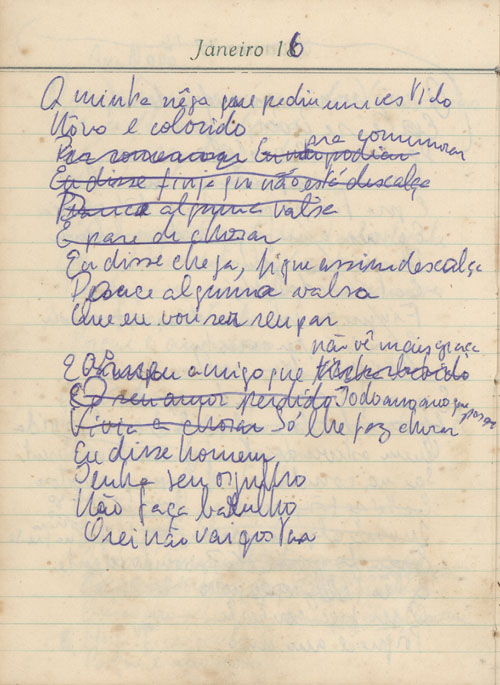 Janeiro 16
A minha nêga que pediu um vestido
Novo e colorido
pra comemorar
Pra comemorar Eu não podia
Eu disse finja que não está descalça
Dance alguma valsa
E pare de chorar
Eu disse chega, fique assim descalça
Dance alguma valsa
Que eu vou ser seu par
não vê mais graça
E o meu amigo que tinha bebido
O seu amor perdido Todo ano que passa
Vivia a chorar Só lhe faz chorar
Eu disse homem
Tenha seu orgulho
Não faça barulho
O rei não vai gostar